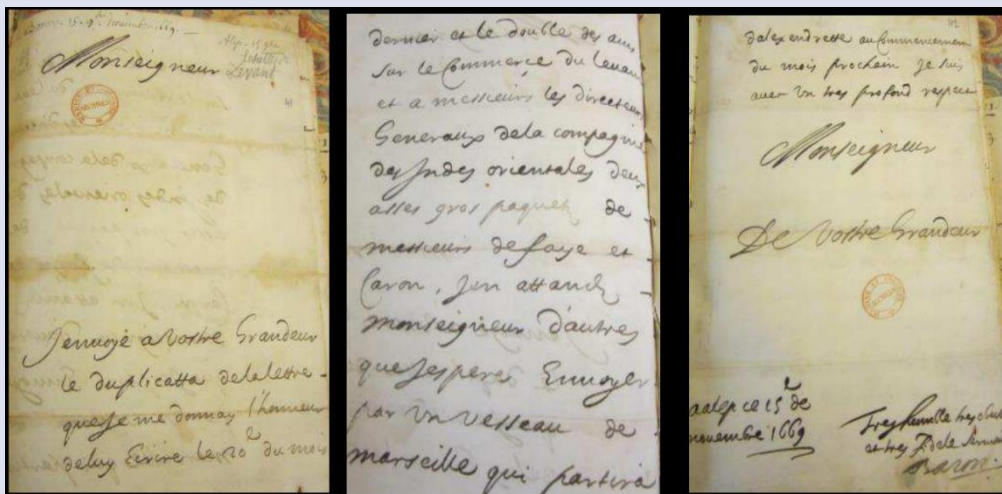 Monseigneur
Levant
J'envoye a Vostre Grandeur
le duplicatta dela lettre
que Je me donnay l'honneur
deluy Ecrire le 20e du mois
dernier et le double des avis
sur le Commerce du levant
et a messieurs les directeurs
Generaux dela compagnie
des Indes orientales deux
asses gros paquets de
messieurs de faye et
Caron, Jen attands
monseigneur d'autres
que Jespere Envoyer
par un vesseau de
marseille qui partira
dalexandrette au Commencement
du mois prochain Je suis
avec un tres profond respect
Monseigneur
De Vostre Grandeur
aalep ce 15e de
novembre 1669
Tres humble tres
et tres
Baron